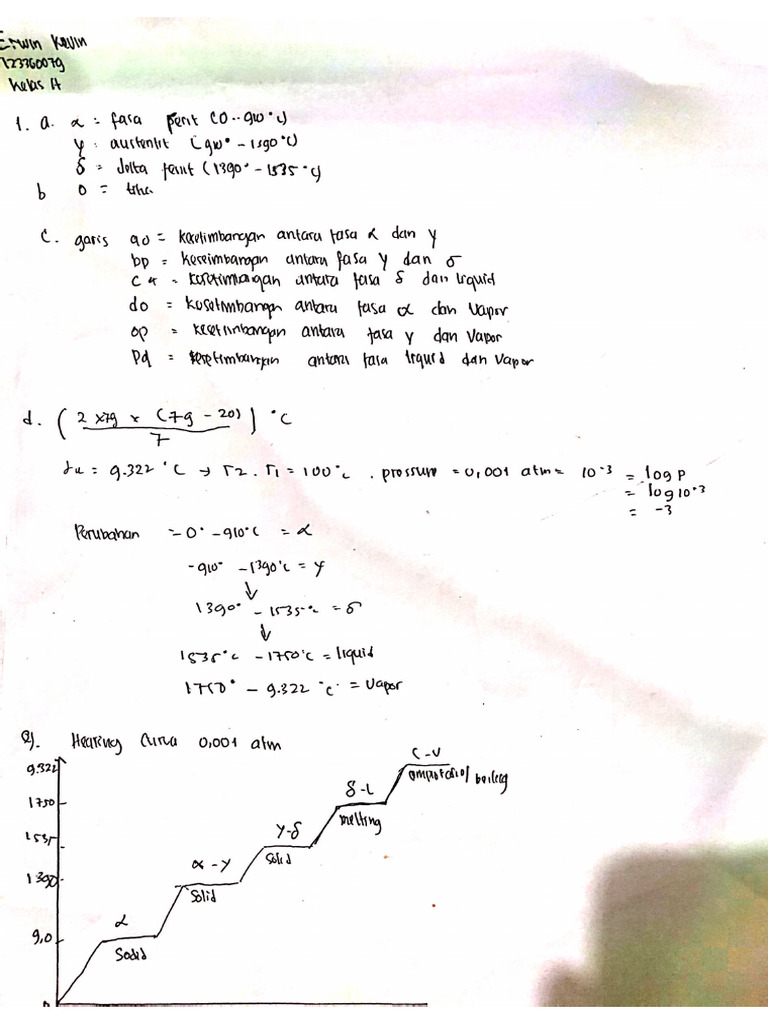 Erwin Kevin
123360079
Kelas A
1. a. α = fasa ferit (0 - 910°C)
γ : austenit (910° - 1390°C)
δ = delta ferit (1390° - 1535°C)
b 0 =
c. garis ao = kesetimbangan antara fasa α dan γ
bp = keseimbangan antara fasa γ dan σ
= kesetimbangan antara fasa δ dan liquid
do = kesetimbangan antara fasa α dan vapor
op = kesetimbangan antara fasa γ dan vapor
pq = kesetimbangan antara fasa liquid dan vapor
d. ( 2 x 79 x (79 - 20) ) °C
7
= 9.322 °C → T2 . T1 = 100°C . pressure = 0,001 atm = 10⁻³ = log P
= log 10⁻³
= -3
Perubahan = 0° - 910°C = α
- 910° - 1390°C = γ
↓
1390° - 1535°C = δ
↓
1535°C - 1750°C = liquid
1750° - 9.322 °C = Vapor
2). Heating 0,001 atm
9.322
1750
1535
1390
910
0
α
Solid
α - γ
Solid
γ - δ
Solid
δ - L
melting
L - V
boiling